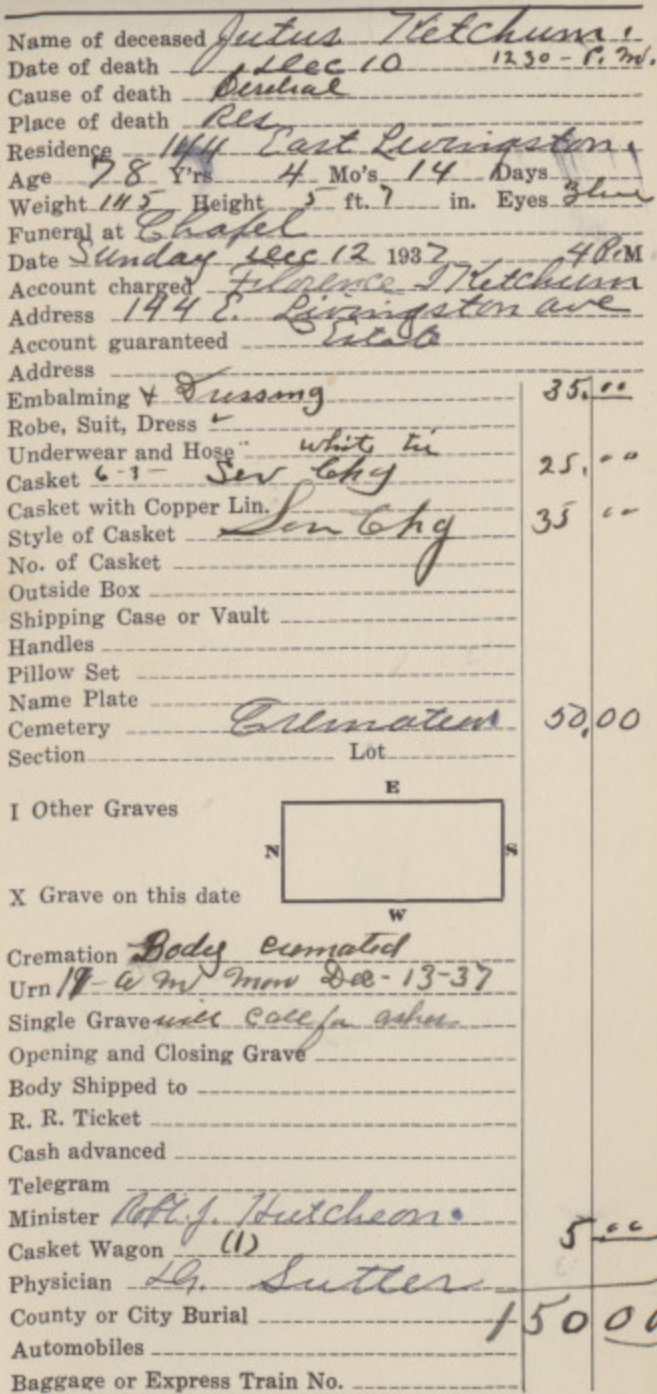 Name of deceased Jutus Ketchum.
Date of death Dec 10 1230 - P. M.
Cause of death
Place of death Res
Residence 144 East Livingston.
Age 78 Y'rs 4 Mo's 14 Days
Weight 145 Height 5 ft. 7 in. Eyes Blue
Funeral at Chapel
Date Sunday Dec 12 1937 4 P.M
Account charged Florence I Ketchum
Address 144 E. Livingston ave
Account guaranteed Estate
Address
Embalming & Dressing 35.00
Robe, Suit, Dress
Underwear and Hose " white tie
Casket 6-3- Ser Chg 25.00
Casket with Copper Lin.
Style of Casket Ser Chg 35 00
No. of Casket
Outside Box
Shipping Case or Vault
Handles
Pillow Set
Name Plate
Cemetery Cremation 50.00
Section Lot
E
I Other Graves
N S
X Grave on this date
W
Cremation Body cremated
Urn 11 - a m Mon Dec - 13-37
Single Grave will call for ashes
Opening and Closing Grave
Body Shipped to
R. R. Ticket
Cash advanced
Telegram
Minister Robt. J. Hutcheon. 5 00
Casket Wagon (1)
Physician Sutter
County or City Burial 150 00
Automobiles
Baggage or Express Train No.